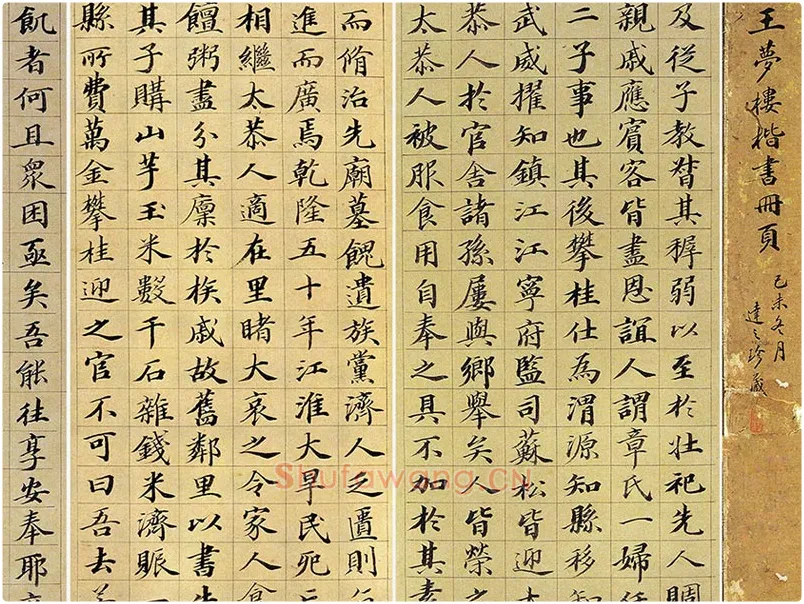 王夢樓楷書冊頁
己未冬月
達之珍藏
及從子教督其稺弱以至於壯祀先人賙
親戚應賓客皆盡恩誼人謂章氏一婦任
二子事也其後攀桂仕為渭源知縣移知
武威擢知鎮江江寧府監司蘇松皆迎太
恭人於官舍諸孫屢與鄉舉矣人皆榮之
太恭人被服食用自奉之具不加於其素
而脩治先廟墓餽遺族黨濟人之匱則
進而廣焉乾隆五十年江淮大旱民死亡
相繼太恭人適在里睹大哀之令家人食
饘粥盡分其廩於族戚故舊鄰里以書
其子購山芋玉米數千石雜錢米濟賑
縣所費萬金攀桂迎之官不可曰吾去
飢者何且眾困亟矣吾能往享安奉耶
Shufawang.CN